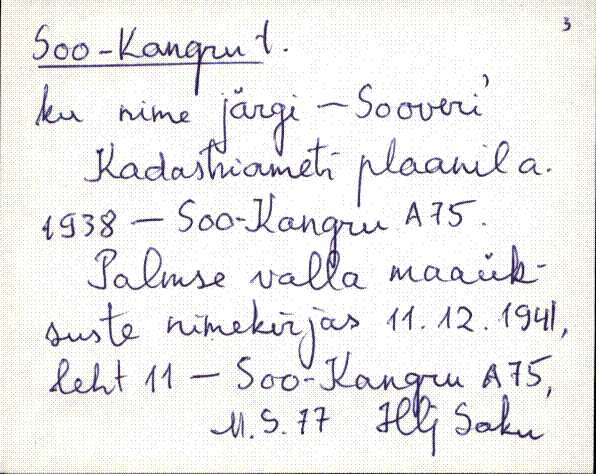 3
Soo-Kangru t.
ku nime järgi – Sooveri'
Kadastriameti plaanil a.
1938 – Soo-Kangru A75.
Palmse valla maaük-
suste nimekirjas 11.12.1941,
leht 11 – Soo-Kangru A75,
M.S.77 Hlj Saku